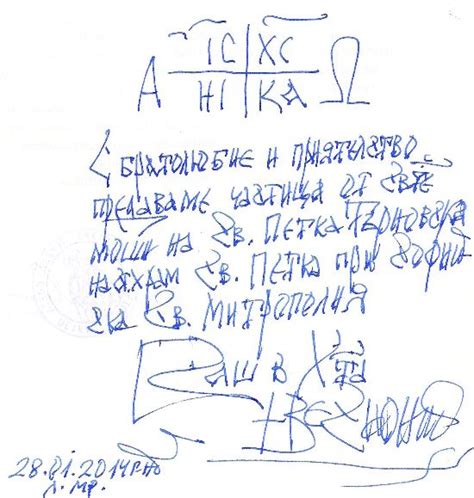 ІС ХС
А НІ КА Ω
С братолюбие и приятелство
предаваме частица от св҃те
мощи на Св. Петка Търновска
на храм Св. Петка при Софий
ска Св. Митрополия
Ваш в Х҃та
28.01.2014